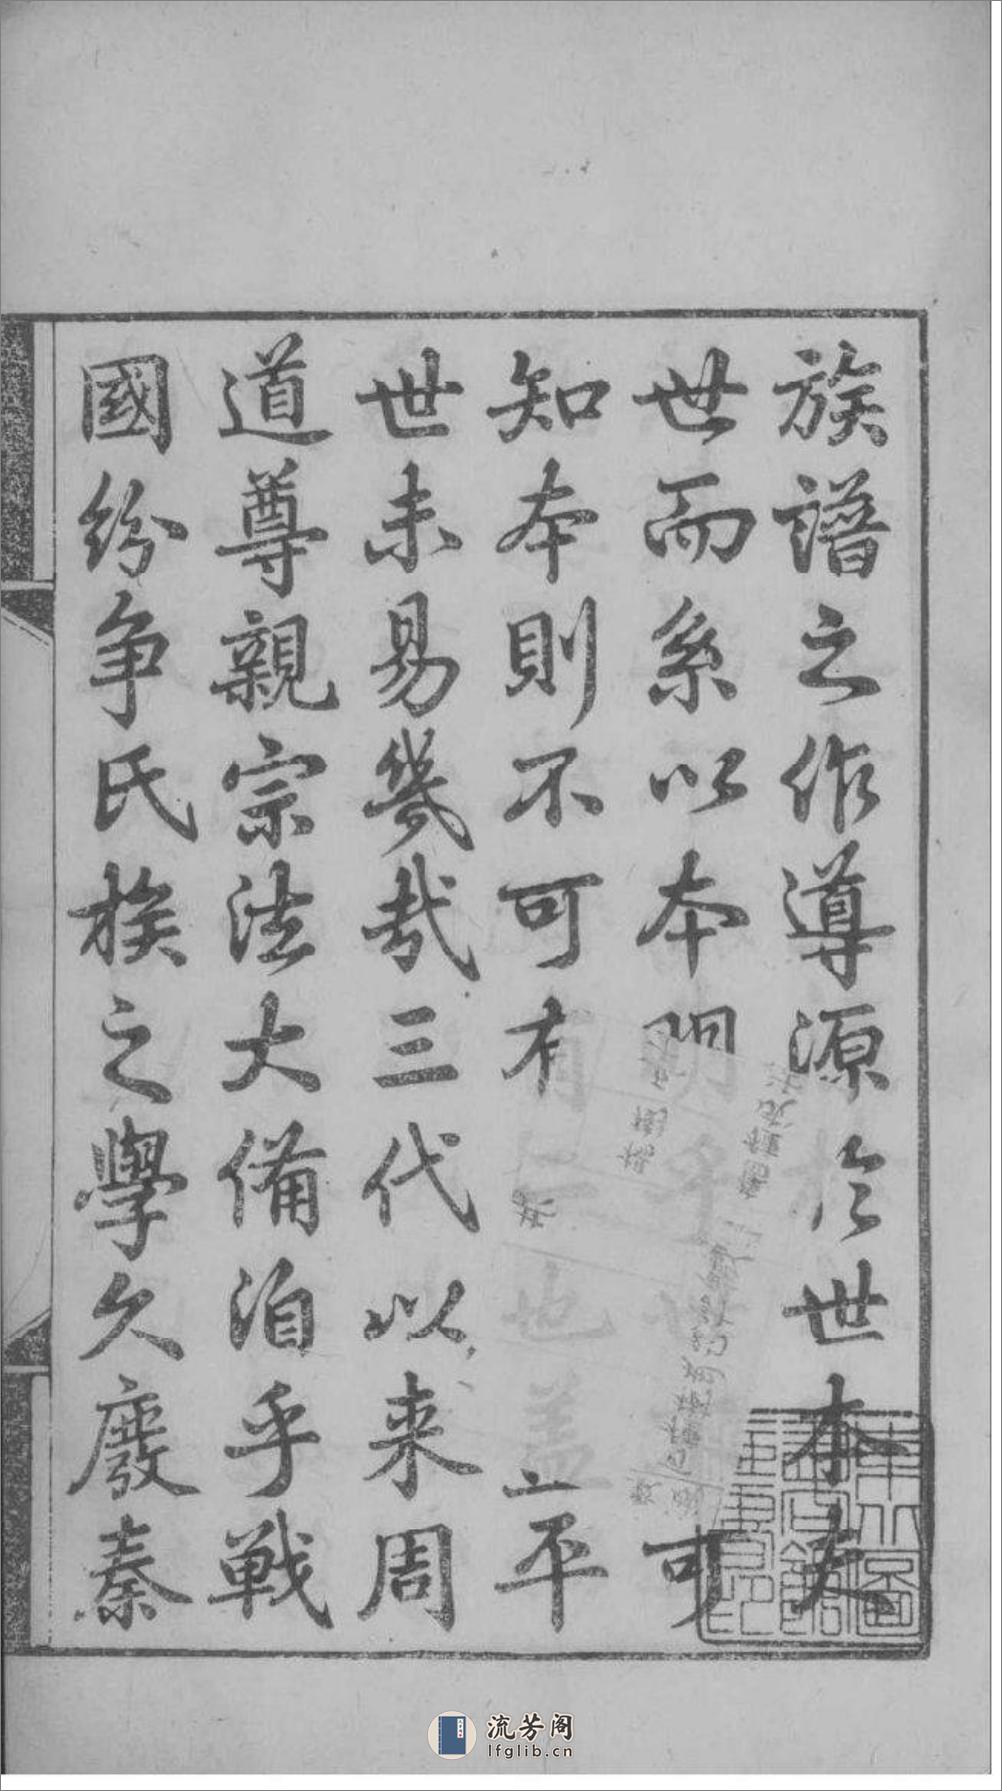 族譜之作導源於世本夫
世而系以本明可
知本則不可有平
世未易幾哉三代以来周
道尊親宗法大備洎乎戰
國紛争氏族之學久廢秦
流芳阁
lfglib.cn